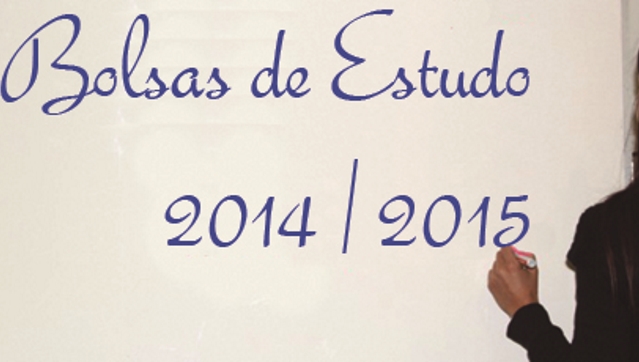 Bolsas de Estudo
2014 | 2015